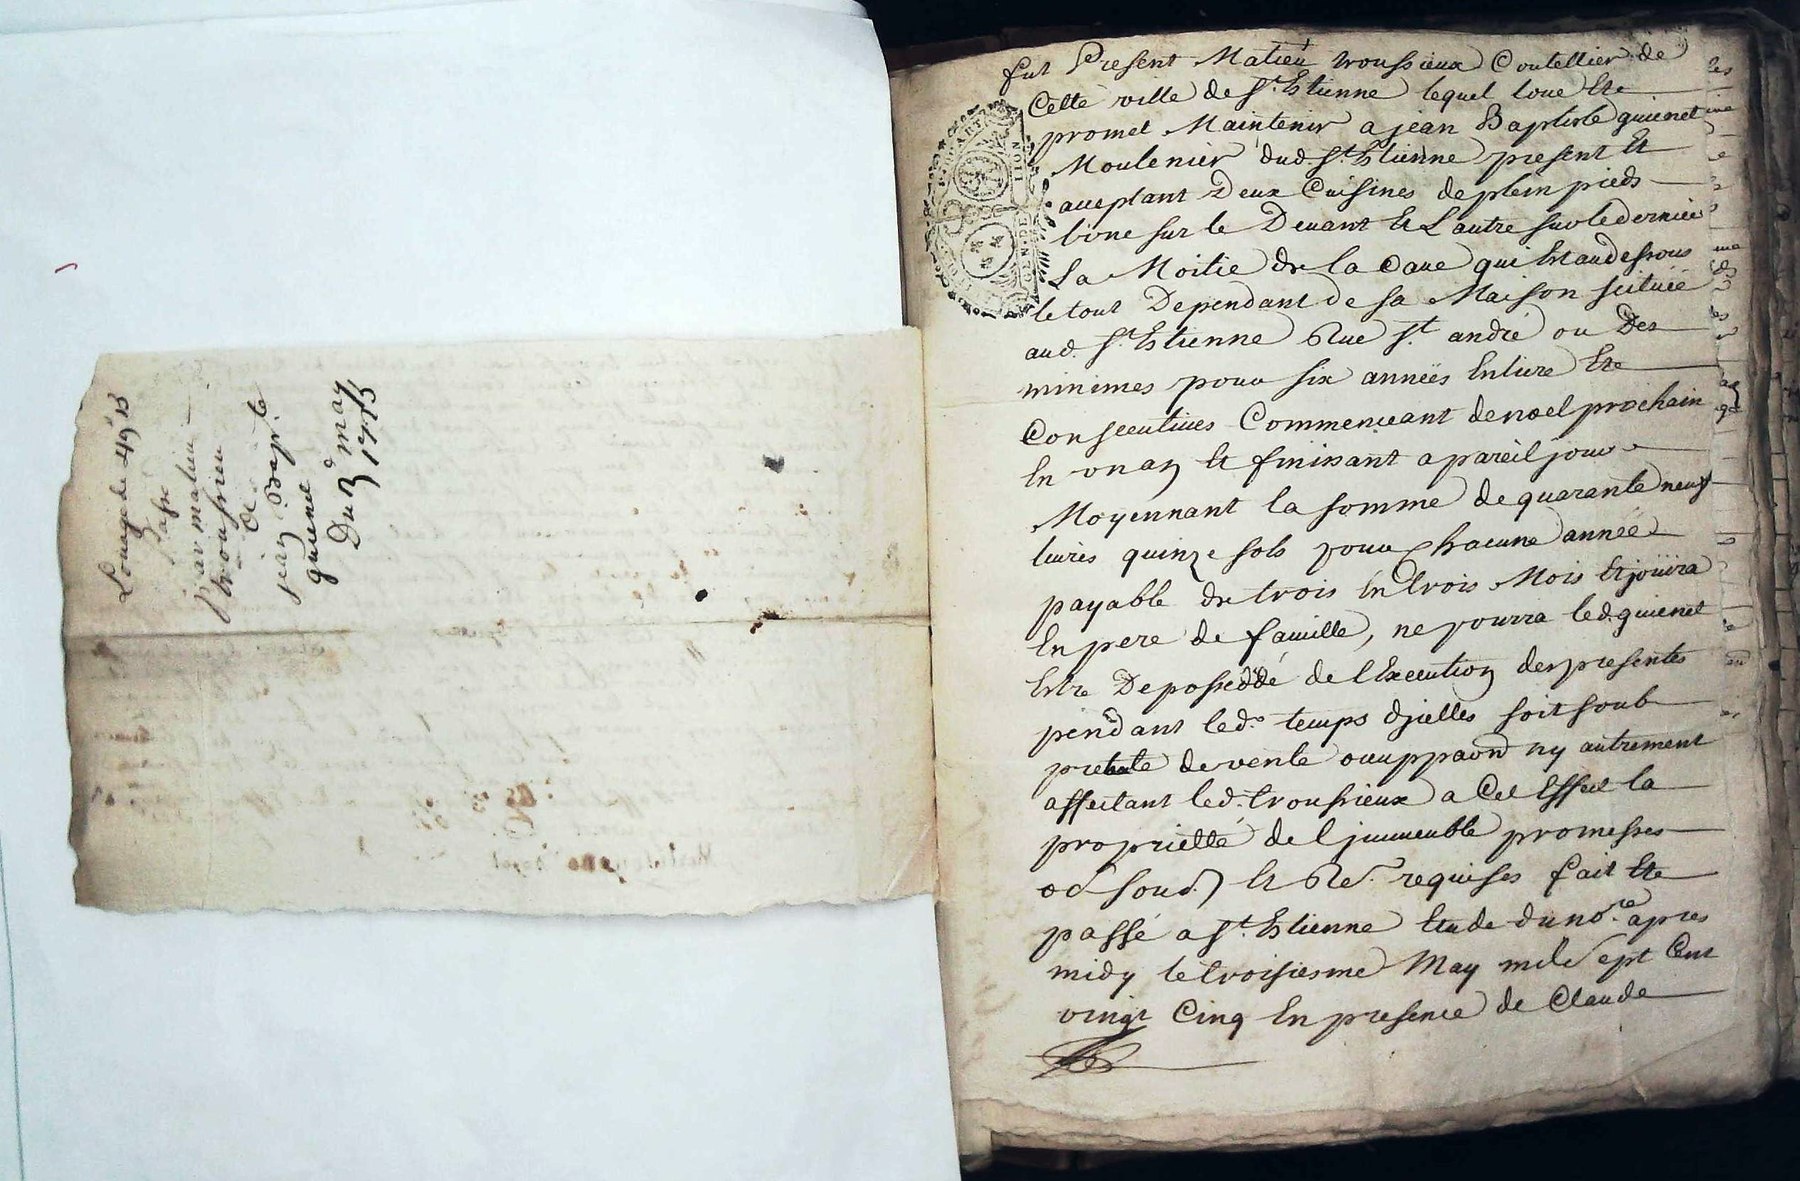 Louage de 49# 15
Passé
Par matieu
troussieu
a
jean Bapt.te
guienet
Du 3e may
1725
fut Present Matieu troussieux Coutellier de
Cette ville de St Etienne lequel loue Et
promet Maintenir a jean Baptiste guienet
Moulenier dud. St Etienne present Et
acceptant Deux Cuisines de plein pieds
l'une sur le Devant Et L'autre sur le dernier
La Moitie de la Cave qui Est au dessous
le tout Dependant de sa Maison scituée
aud. St Etienne Rue St andré ou Des
minimes pour six années Entiere Et
Consecutives Commenceant de noel prochain
En un an Et finissant a pareil jour
Moyennant la somme de quarante neuf
livres quinze sols pour Chacune année
payable de trois En trois Mois Et joüira
En pere de famille, ne pourra led. guienet
Estre Depossedé de l'Execution des presentes
pendant led. temps d'jcelles soit soub
pretexte de vente ny autrement
affectant led. troussieux a Cet Effect la
proprietté de l'jmmeuble promesses
Et Re. requises fait Et
passé a St Etienne Etude du no.re apres
midy le troisiesme May mile sept Cent
vingt Cinq En presence de Claude
GEN. DE LION